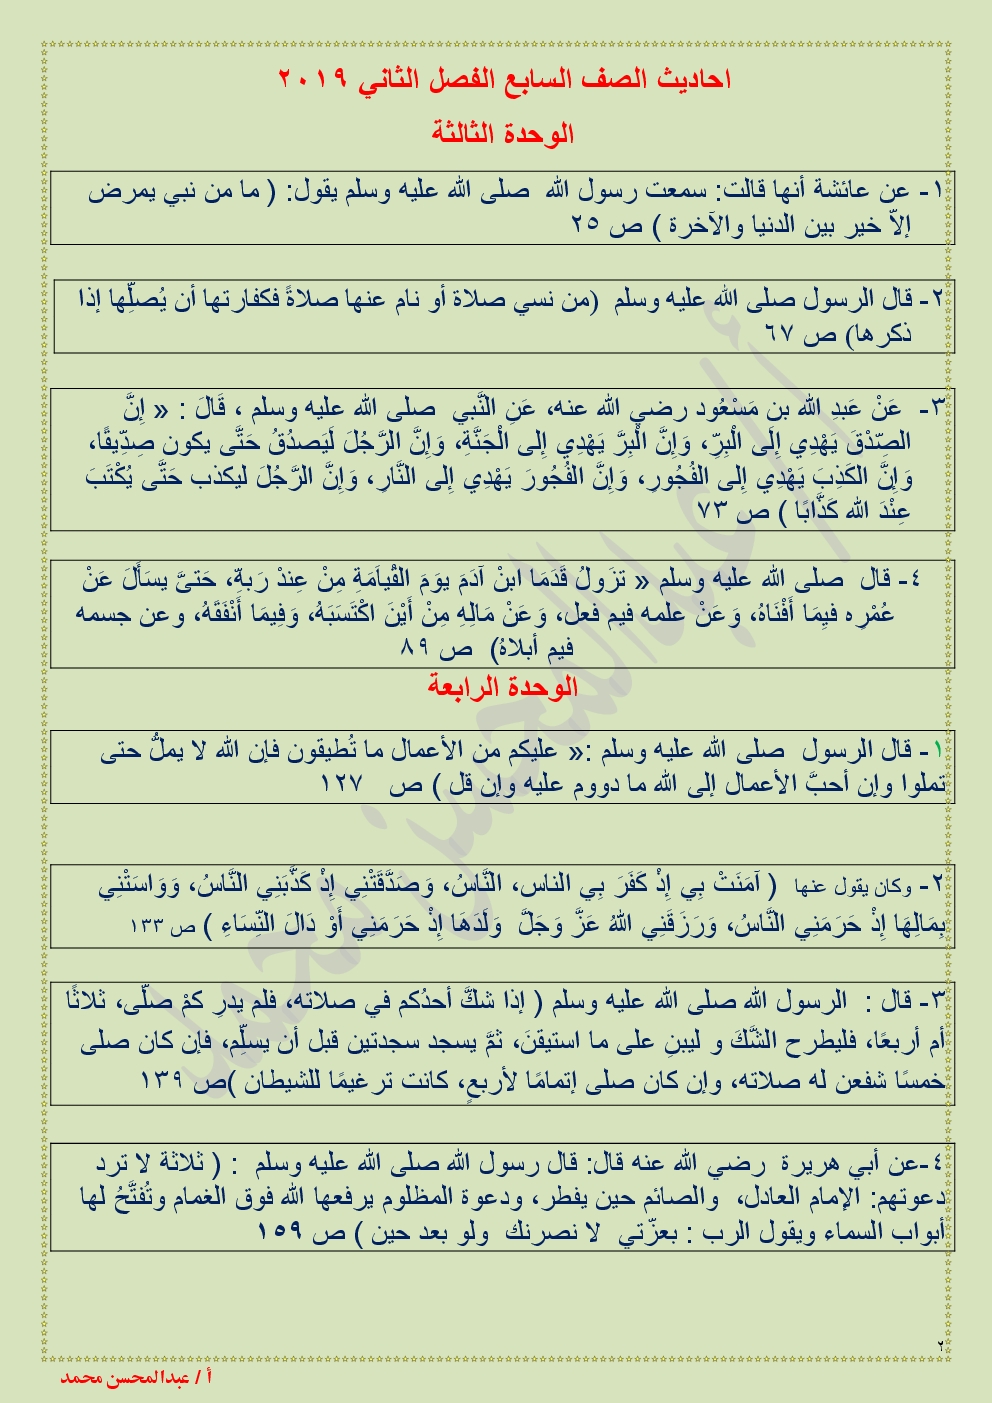 احاديث الصف السابع الفصل الثاني ٢٠١٩
الوحدة الثالثة
١- عن عائشة أنها قالت: سمعت رسول الله صلى الله عليه وسلم يقول: ( ما من نبي يمرض
إلاّ خير بين الدنيا والآخرة ) ص ٢٥
٢- قال الرسول صلى الله عليه وسلم (من نسي صلاة أو نام عنها صلاةً فكفارتها أن يُصلِّها إذا
ذكرها) ص ٦٧
٣- عَنْ عَبدِ الله بنِ مَسْعُود رضي الله عنه، عَنِ النَّبي صلى الله عليه وسلم ، قَالَ : « إِنَّ
الصِّدْقَ يَهْدِي إِلَى الْبِرِّ، وَإِنَّ الْبِرَّ يَهْدِي إِلى الْجَنَّةِ، وَإِنَّ الرَّجُلَ لَيَصدُقُ حَتَّى يكون صِدِّيقًا،
وَإِنَّ الكَذِبَ يَهْدِي إِلى الفُجُورِ، وَإِنَّ الفُجُورَ يَهْدِي إِلى النَّارِ، وَإِنَّ الرَّجُلَ ليكذب حَتَّى يُكْتَبَ
عِنْدَ الله كَذَّابًا ) ص ٧٣
٤- قال صلى الله عليه وسلم « تزَولُ قَدَمَا ابنْ آدَمَ يوَمَ القْيِاَمَةِ مِنْ عِندْ رَبهِّ، حَتىَّ يسَأْلَ عَنْ
عُمْرِه فيِمَا أَفْنَاهُ، وَعَنْ علمه فيم فعل، وَعَنْ مَالِهِ مِنْ أَيْنَ اكْتَسَبَهُ، وَفِيمَا أَنْفَقَهُ، وعن جسمه
فيم أبلاهُ) ص ٨٩
الوحدة الرابعة
١- قال الرسول صلى الله عليه وسلم :« عليكم من الأعمال ما تُطيقون فإن الله لا يملُّ حتى
تملوا وإن أحبَّ الأعمال إلى الله ما دووم عليه وإن قل ) ص ١٢٧
٢- وكان يقول عنها ( آمَنَتْ بِي إِذْ كَفَرَ بِي الناس، النَّاسُ، وَصَدَّقَتْنِي إِذْ كَذَّبَنِي النَّاسُ، وَوَاسَتْنِي
بِمَالِهَا إِذْ حَرَمَنِي النَّاسُ، وَرَزَقَنِي اللهُ عَزَّ وَجَلَّ وَلَدَهَا إِذْ حَرَمَنِي أَوْ دَالَ النِّسَاءِ ) ص ١٣٣
٣- قال : الرسول الله صلى الله عليه وسلم ( إذا شكَّ أحدُكم في صلاته، فلم يدرِ كمْ صلّى، ثلاثًا
أم أربعًا، فليطرح الشَّكَ و ليبنِ على ما استيقنَ، ثمَّ يسجد سجدتين قبل أن يسلِّم، فإن كان صلى
خمسًا شفعن له صلاته، وإن كان صلى إتمامًا لأربعٍ، كانت ترغيمًا للشيطان )ص ١٣٩
٤-عن أبي هريرة رضي الله عنه قال: قال رسول الله صلى الله عليه وسلم : ( ثلاثة لا ترد
دعوتهم: الإمام العادل، والصائم حين يفطر، ودعوة المظلوم يرفعها الله فوق الغمام وتُفتَّحُ لها
أبواب السماء ويقول الرب : بعزّتي لا نصرنك ولو بعد حين ) ص ١٥٩
أ/عبدالمحسن محمد
٢
أ / عبدالمحسن محمد